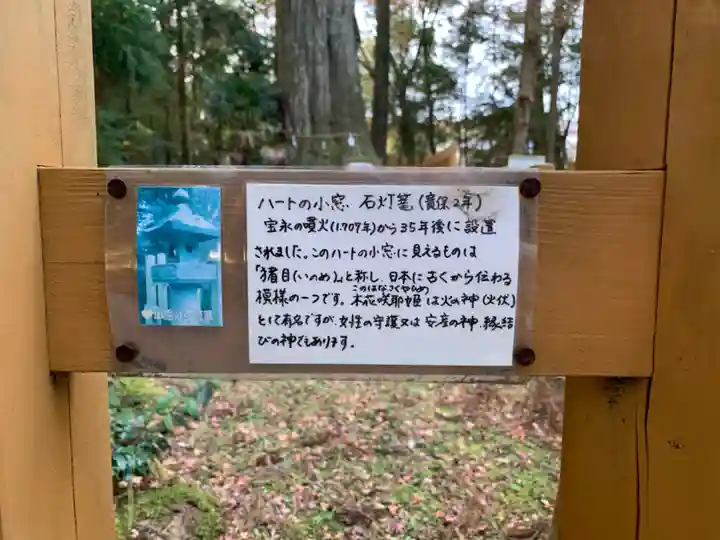 ハートの小窓 石灯篭(寛保2年)
宝永の噴火(1.707年)から35年後に設置
されました。このハートの小窓に見えるものは
「猪目(いのめ)」と称し、日本に古くから伝わる
模様の一つです。木花咲耶姫は火の神(火伏)
このはなさくやひめ
として有名ですが、女性の守護又は安産の神、縁結
びの神でもあります。